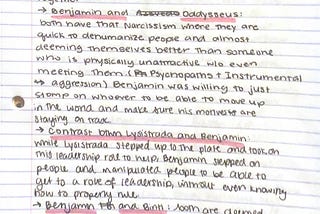 → Benjamin and Oddysseus:
both have that Narcissism where they are
quick to dehumanize people and almost
deeming themselves better than someone
who is physically unattractive w/o even
meeting them. (Psychopaths + Instrumental
→ aggression) Benjamin was willing to just
stomp on whoever to be able to move up
in the world and make sure his motives are
staying on track.
→ Contrast btwn Lysistrada and Benjamin:
While Lysistrada stepped up to the plate and took on
this leadership role to help. Benjamin stepped on
people and manipulated people to be able to
get to a role of leadership, without even knowing
how to properly rule.
→ Benjamin and Binti: both are